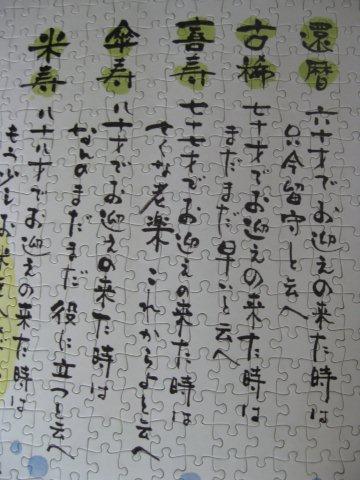 還暦
六十才でお迎えの来た時は
只今留守と云へ
古稀
七十才でお迎えの来た時は
まだまだ早いと云へ
喜寿
七十七才でお迎えの来た時は
せくな老楽これからよと云へ
傘寿
八十才でお迎えの来た時は
なんのまだまだ役に立つと云へ
米寿
八十八才でお迎えの来た時は
もう少しお米を